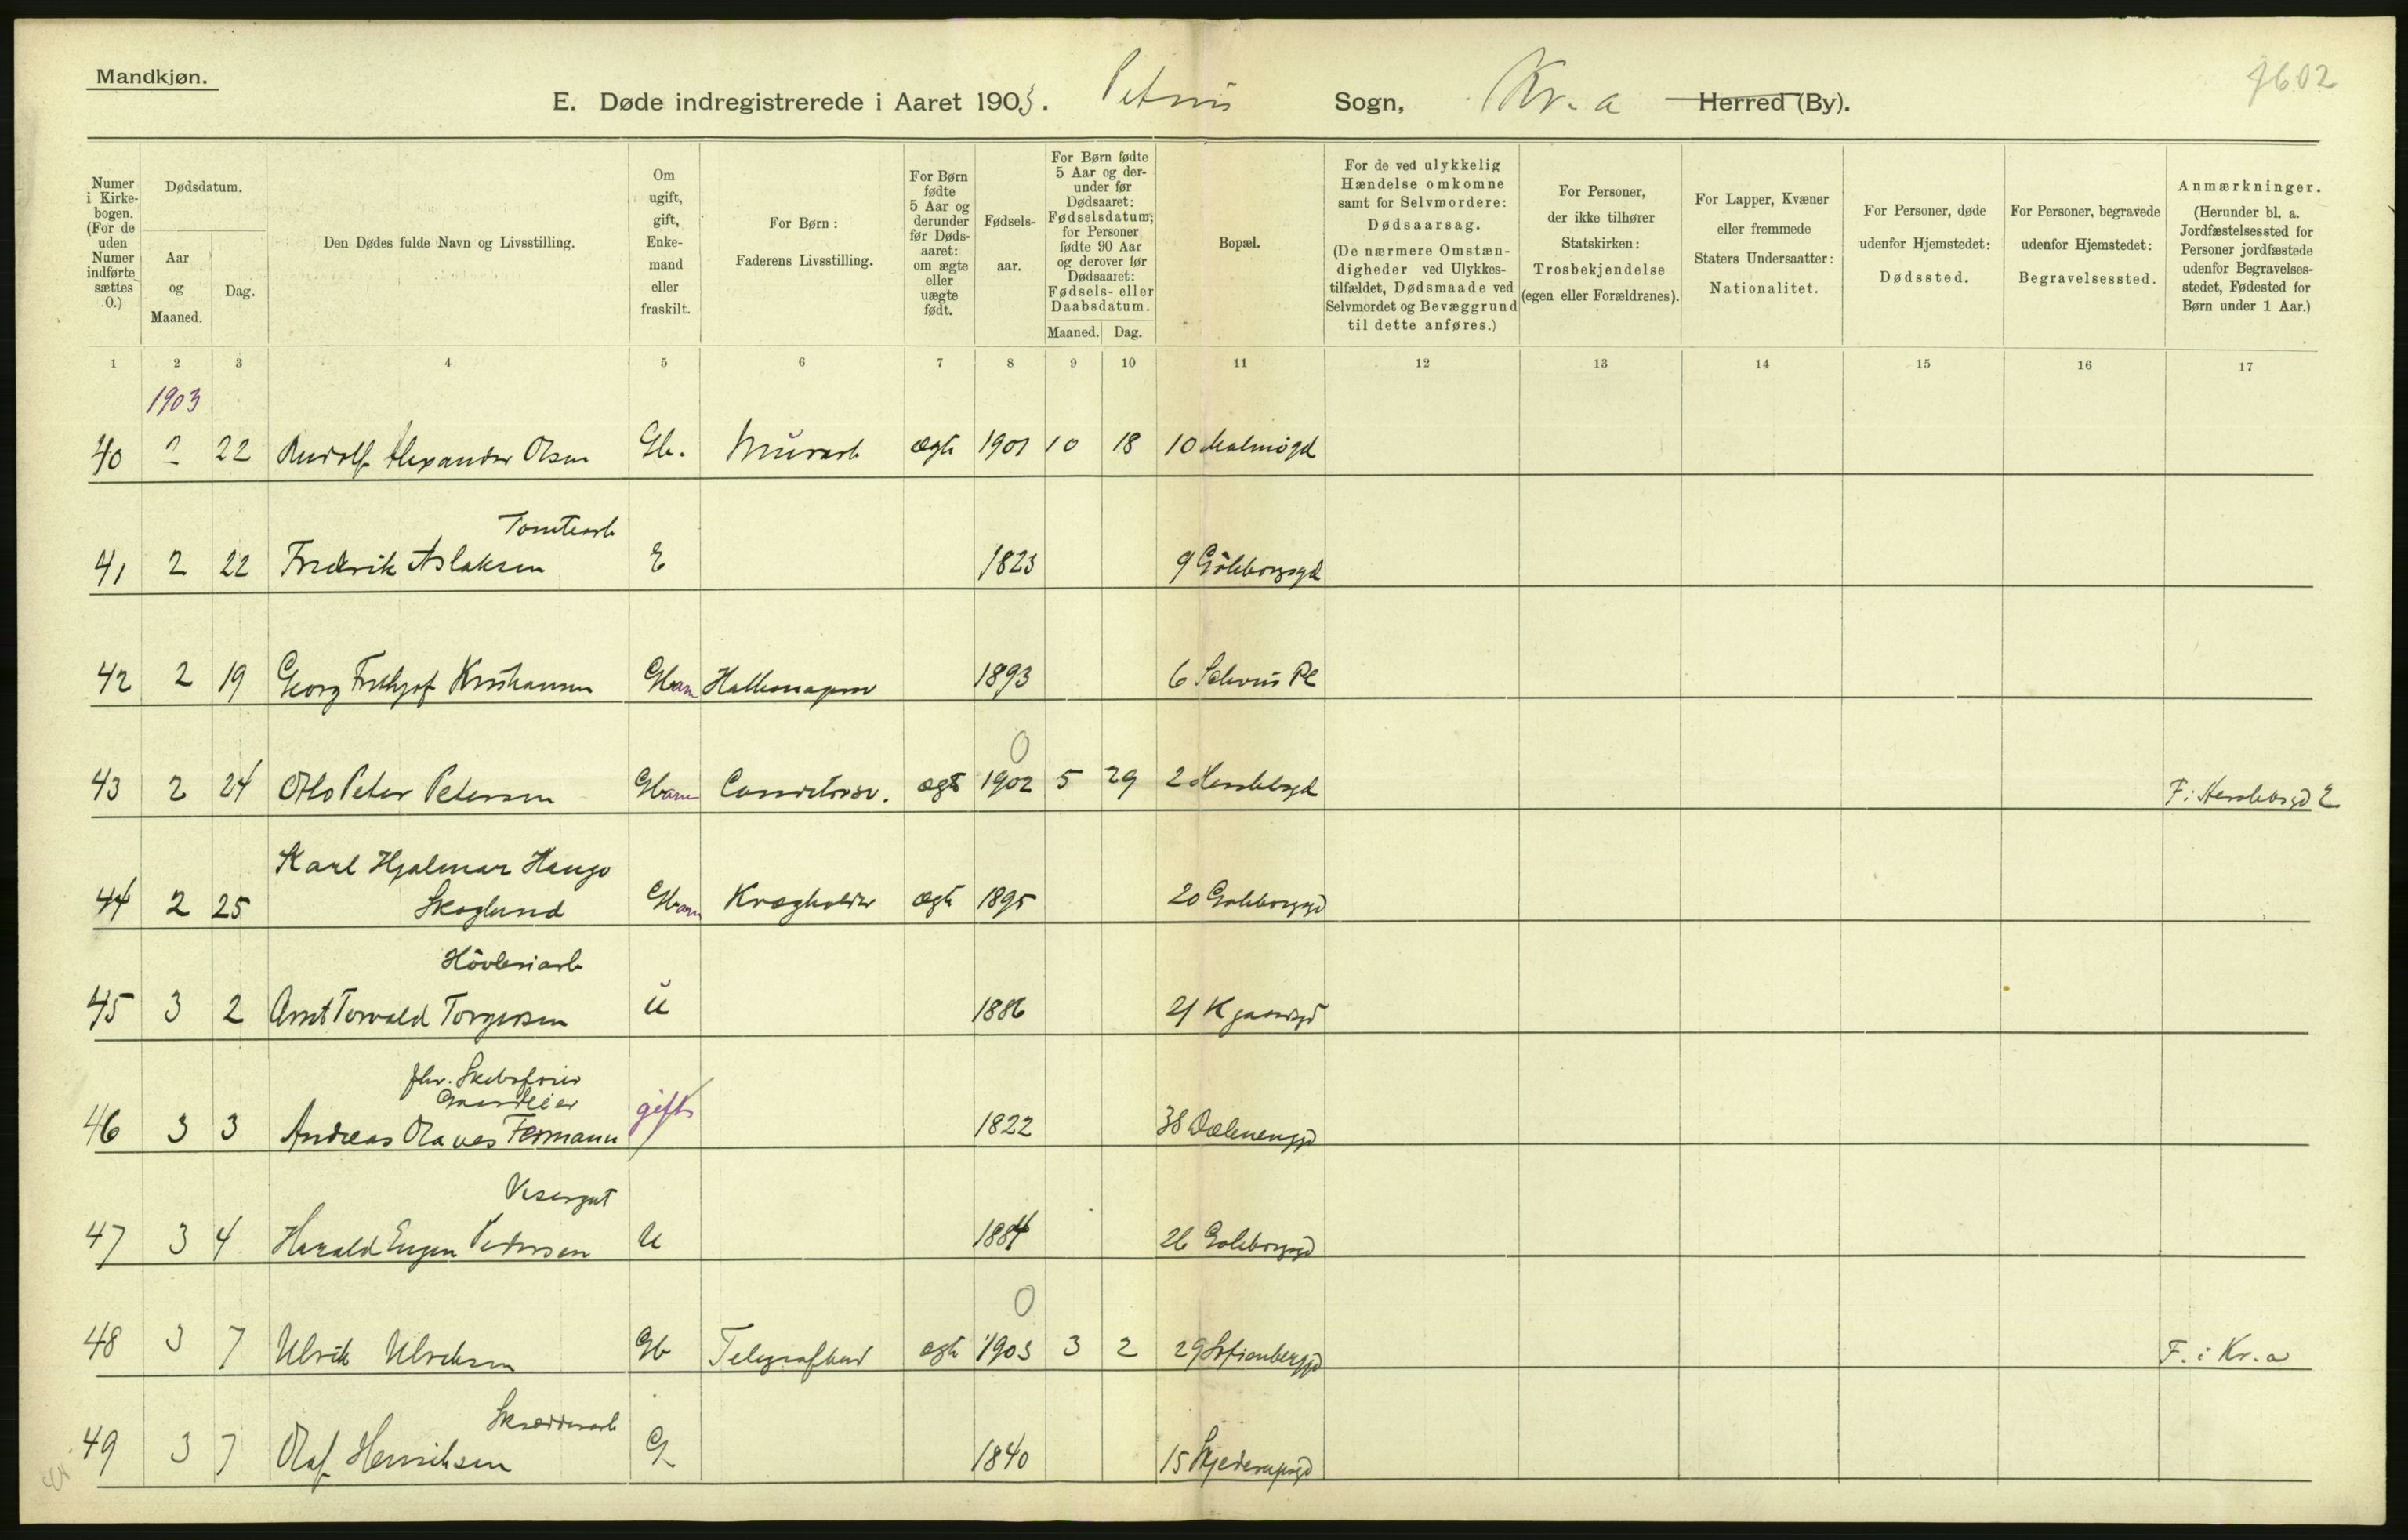 Mandkjøn.
E. Døde indregistrerede i Aaret 1903. Petrus Sogn, Kr.a Herred (By).
7602
Numer i Kirkebogen. (For de uden Numer indførte sættes 0.)
Dødsdatum.
Aar og Maaned.
Dag.
Den Dødes fulde Navn og Livsstilling.
Om ugift, gift, Enkemand eller fraskilt.
For Børn: Faderens Livsstilling.
For Børn fødte 5 Aar og derunder før Dødsaaret: om ægte eller uægte født.
Fødselsaar.
For Børn fødte 5 Aar og derunder før Dødsaaret: Fødselsdatum; for Personer fødte 90 Aar og derover før Dødsaaret: Fødsels- eller Daabsdatum.
Maaned. Dag.
Bopæl.
For de ved ulykkelig Hændelse omkomne samt for Selvmordere: Dødsaarsag. (De nærmere Omstændigheder ved Ulykkestilfældet, Dødsmaade ved Selvmordet og Bevæggrund til dette anføres.)
For Personer, der ikke tilhører Statskirken: Trosbekjendelse (egen eller Forældrenes).
For Lapper, Kvæner eller fremmede Staters Undersaatter: Nationalitet.
For Personer, døde udenfor Hjemstedet: Dødssted.
For Personer, begravede udenfor Hjemstedet: Begravelsessted.
Anmærkninger. (Herunder bl. a. Jordfæstelsessted for Personer jordfæstede udenfor Begravelsesstedet, Fødested for Børn under 1 Aar.)
1 2 3 4 5 6 7 8 9 10 11 12 13 14 15 16 17
1903
40 2 22 Rudolf Alexander Olsen Gb. Murarb ægte 1901 10 18 10 Malmøgd
Tomtearb
41 2 22 Fredrik Aslaksen E 1823 9 Göteborggd
42 2 19 Georg Frithjof Kristiansen Gbarn 1893 6 Schous Pl
0
43 2 24 Otto Peter Petersen Gbarn Conditorsv. ægte 1902 5 29 2 Herslebsgd F: Herslebsgd 2
Karl Hjalmar Haugo
44 2 25 Skoglund Gbarn ægte 1895 20 Göteborggd
Høvleriarb
45 3 2 Arnt Torvald Torgersen U 1886 21
fhv. Skibsfører
Gaardeier
46 3 3 Andreas Olaves Fermann gift 1822 38 Dælenenggd
Visergut
47 3 4 Harald Eugen Pedersen U 1884 26 Göteborggd
0
48 3 7 Ulrik Ulriksen Gb Telegrafbud ægte 1903 3 2 29 Sofienberggd F. i Kr.a
Skrædderarb
49 3 7 Olaf Henriksen G 1840 15